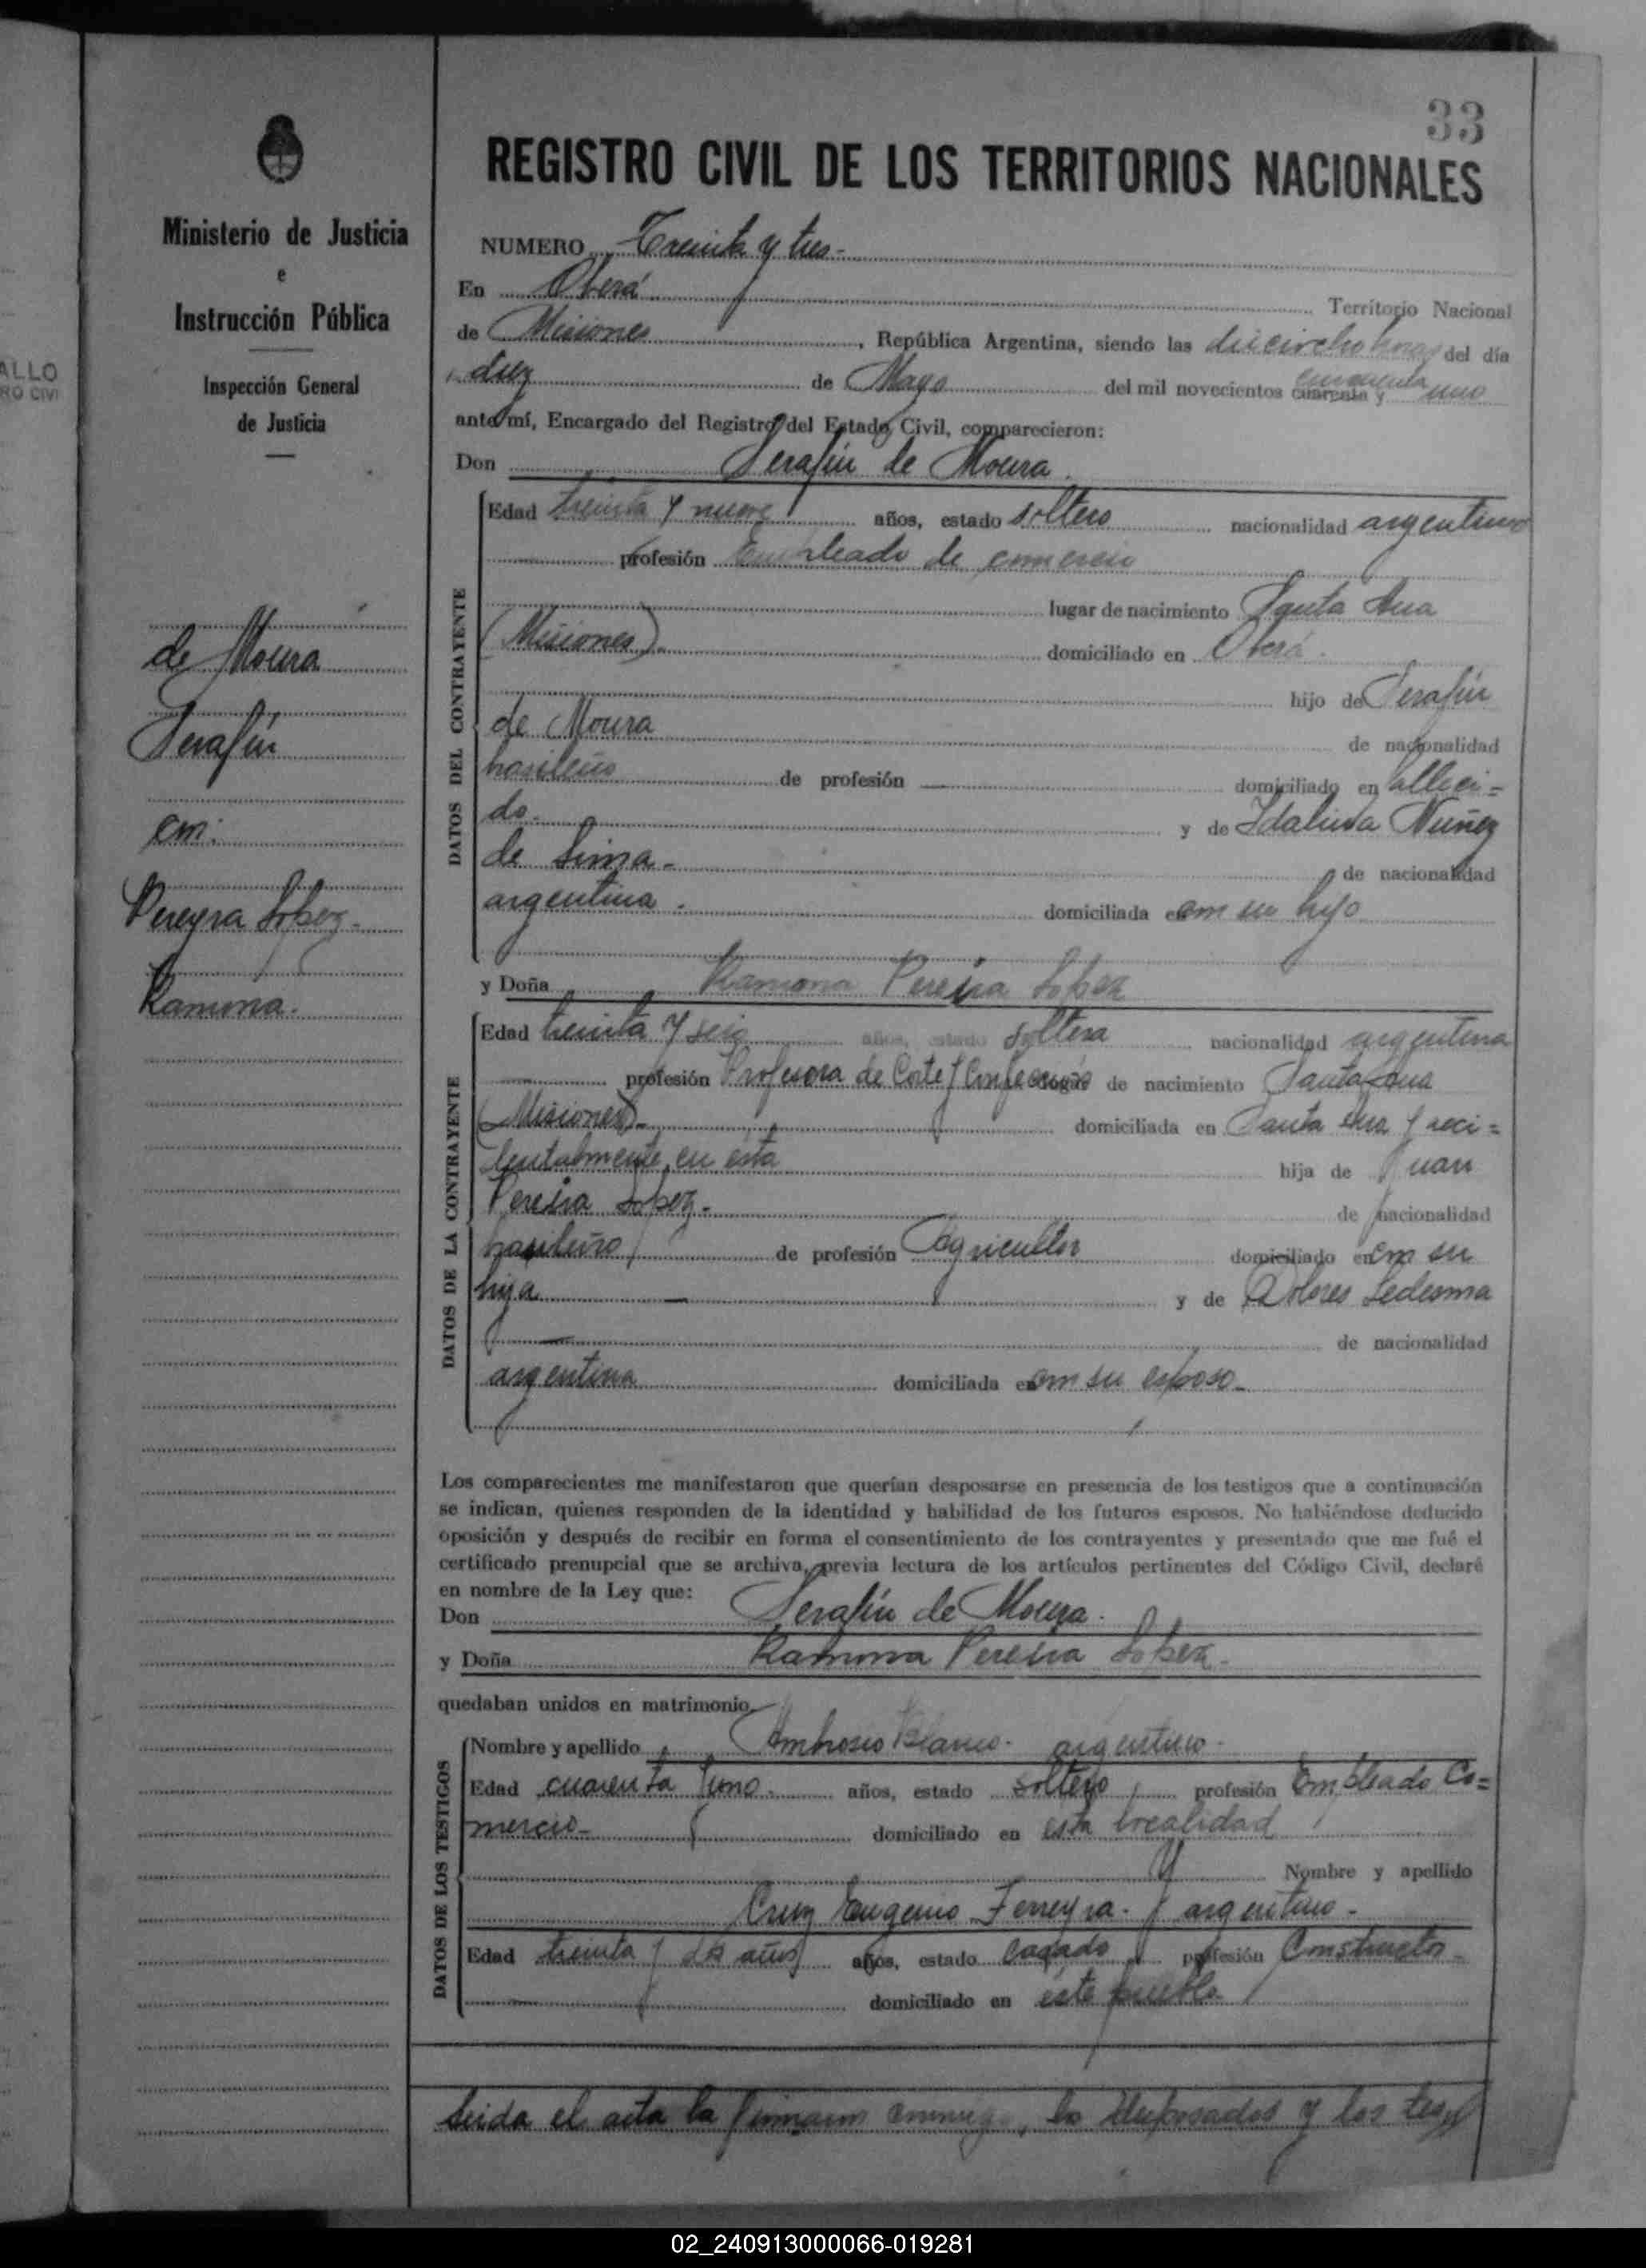 33
REGISTRO CIVIL DE LOS TERRITORIOS NACIONALES
Ministerio de Justicia
e
Instrucción Pública
Inspección General
de Justicia
ALLO
RO CIVI
de Moura
Serafín
con:
Pereyra Lopez.
Ramona.
NUMERO Treinta y tres-
En Oberá Territorio Nacional
de Misiones, República Argentina, siendo las dieciocho horas del día
diez de Mayo del mil novecientos cuarenta y cincuenta uno
ante mí, Encargado del Registro del Estado Civil, comparecieron:
Don Serafín de Moura
DATOS DEL CONTRAYENTE
Edad treinta y nueve años, estado soltero nacionalidad argentino
profesión Empleado de comercio
lugar de nacimiento Santa Ana
(Misiones). domiciliado en Oberá.
hijo de Serafín
de Moura de nacionalidad
brasileño de profesión — domiciliado en falleci=
do. y de Idalina Nuñez
de Lima- de nacionalidad
argentina. domiciliada en con su hijo
y Doña Ramona Pereira Lopez
DATOS DE LA CONTRAYENTE
Edad treinta y seis años, estado soltera nacionalidad argentina
profesión Profesora de Corte y Confección lugar de nacimiento Santa Ana
(Misiones)- domiciliada en Santa Ana y acci=
dentalmente en ésta hija de Juan
Pereira Lopez.- de nacionalidad
brasileño de profesión Agricultor domiciliado en con su
hija — y de Dolores Ledesma
— de nacionalidad
argentina domiciliada en con su esposo-
Los comparecientes me manifestaron que querían desposarse en presencia de los testigos que a continuación
se indican, quienes responden de la identidad y habilidad de los futuros esposos. No habiéndose deducido
oposición y después de recibir en forma el consentimiento de los contrayentes y presentado que me fué el
certificado prenupcial que se archiva, previa lectura de los artículos pertinentes del Código Civil, declaré
en nombre de la Ley que:
Don Serafín de Moura.
y Doña Ramona Pereira Lopez-
quedaban unidos en matrimonio.
DATOS DE LOS TESTIGOS
Nombre y apellido Ambrosio Blanco- argentino-
Edad cuarenta y uno. años, estado soltero, profesión Empleado Co=
mercio- domiciliado en esta localidad
y Nombre y apellido
Cruz Eugenio Ferreyra- argentino-
Edad treinta y dos años años, estado casado, profesión Constructor-
domiciliado en éste pueblo
Leida el acta la firmaron conmigo, los desposados y los
02_240913000066-019281